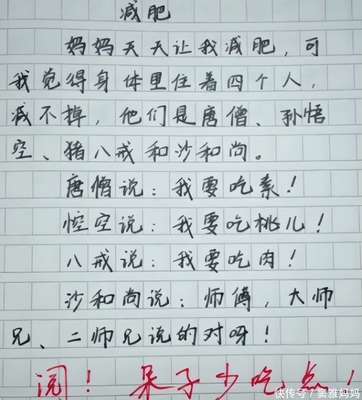 减肥
妈妈天天让我减肥，可
我觉得身体里住着四个人，
减不掉，他们是唐僧、孙悟
空、猪八戒和沙和尚。
唐僧说：我要吃素！
悟空说：我要吃桃儿！
八戒说：我要吃肉！
沙和尚说：师傅，大师
兄、二师兄说的对呀！
阅！呆子少吃点！
快传号/